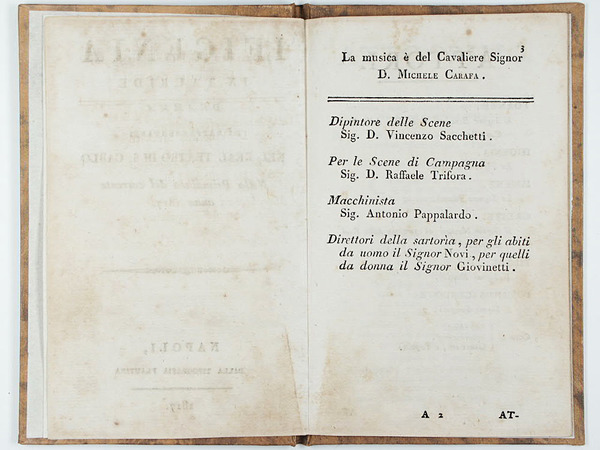 3
La musica è del Cavaliere Signor
D. Michele Carafa.
Dipintore delle Scene
Sig. D. Vincenzo Sacchetti.
Per le Scene di Campagna
Sig. D. Raffaele Trifora.
Macchinista
Sig. Antonio Pappalardo.
Direttori della sartorìa, per gli abiti
da uomo il Signor Novi, per quelli
da donna il Signor Giovinetti.
A 2 AT-